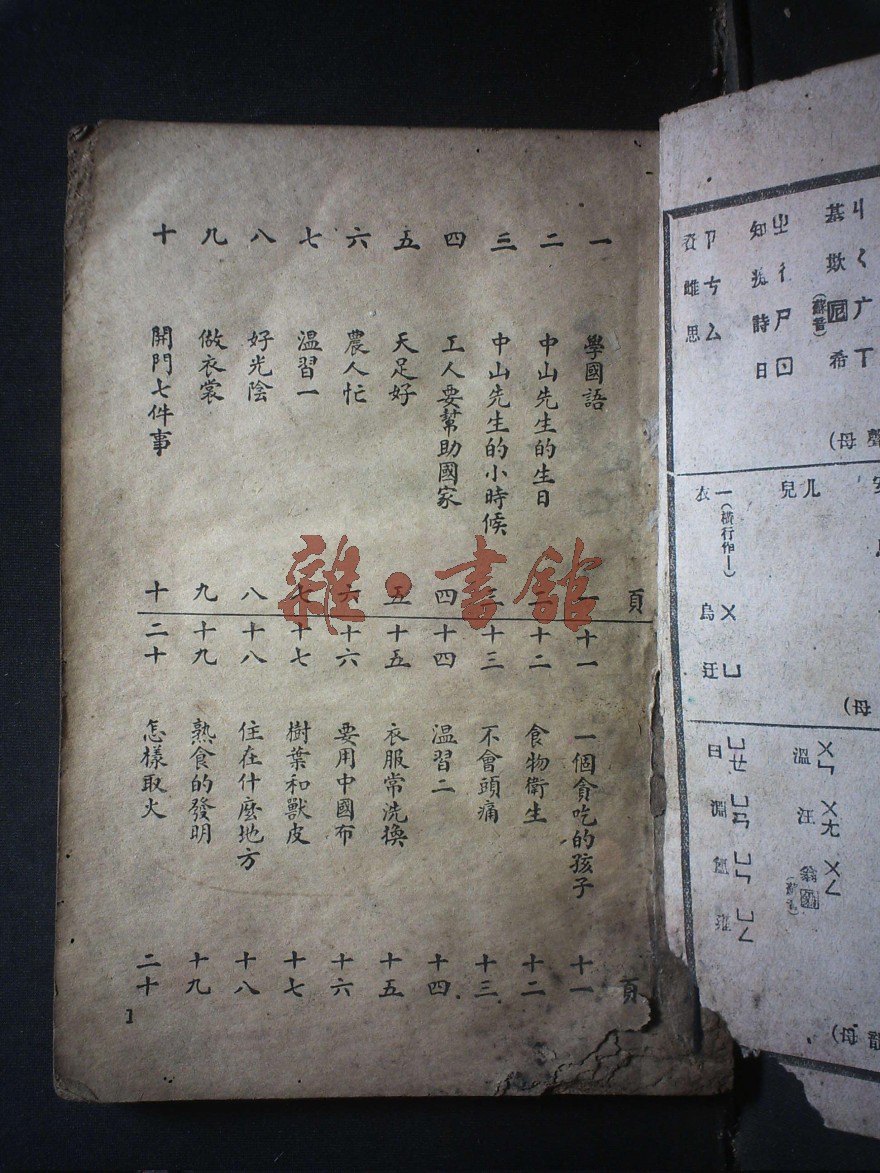 頁
一 學國語 一
二 中山先生的生日 二
三 中山先生的小時候 三
四 工人要幫助國家 四
五 天足好 五
六 農人忙 六
七 溫習一 七
八 好光陰 八
九 做衣裳 九
十 開門七件事 十
頁
十一 一個貪吃的孩子 十一
十二 食物衛生 十二
十三 不會頭痛 十三
十四 溫習二 十四
十五 衣服常洗換 十五
十六 要用中國布 十六
十七 樹葉和獸皮 十七
十八 住在什麼地方 十八
十九 熟食的發明 十九
二十 怎樣取火 二十
1
雜·書館
ㄐ ㄑ 广 ㄒ
基 欺 希
(蘇音)
ㄓ ㄔ ㄕ ㄖ
知 痴 詩 日
ㄗ ㄘ ㄙ
雌 思
母)
ㄦ
兒
一(橫行作丨) ㄨ ㄩ
衣 烏 迂
母)
ㄨㄣ ㄨㄤ ㄨㄥ
溫 汪 翁
ㄩㄝ ㄩㄢ ㄩㄣ ㄩㄥ
曰 淵
母)